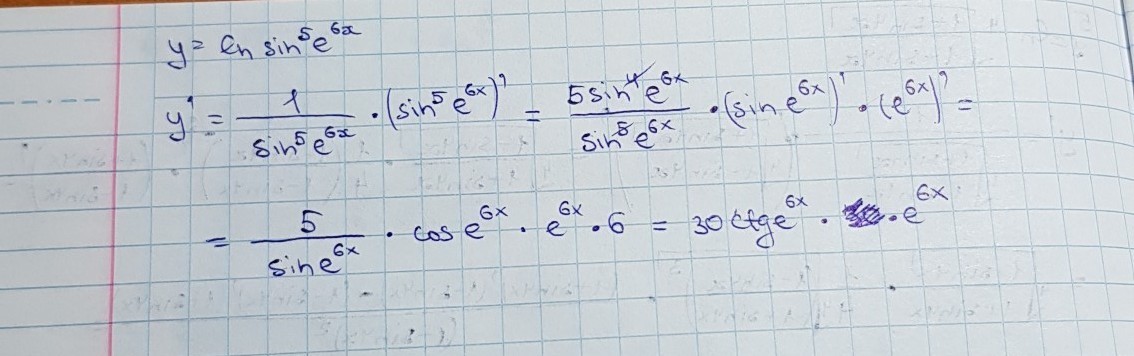 y = ln sin⁵e⁶ˣ
y' = 1/sin⁵e⁶ˣ · (sin⁵e⁶ˣ)' = 5sin⁴e⁶ˣ/sin⁵e⁶ˣ · (sin e⁶ˣ)' · (e⁶ˣ)' =
= 5/sin e⁶ˣ · cos e⁶ˣ · e⁶ˣ · 6 = 30 ctg e⁶ˣ · · e⁶ˣ